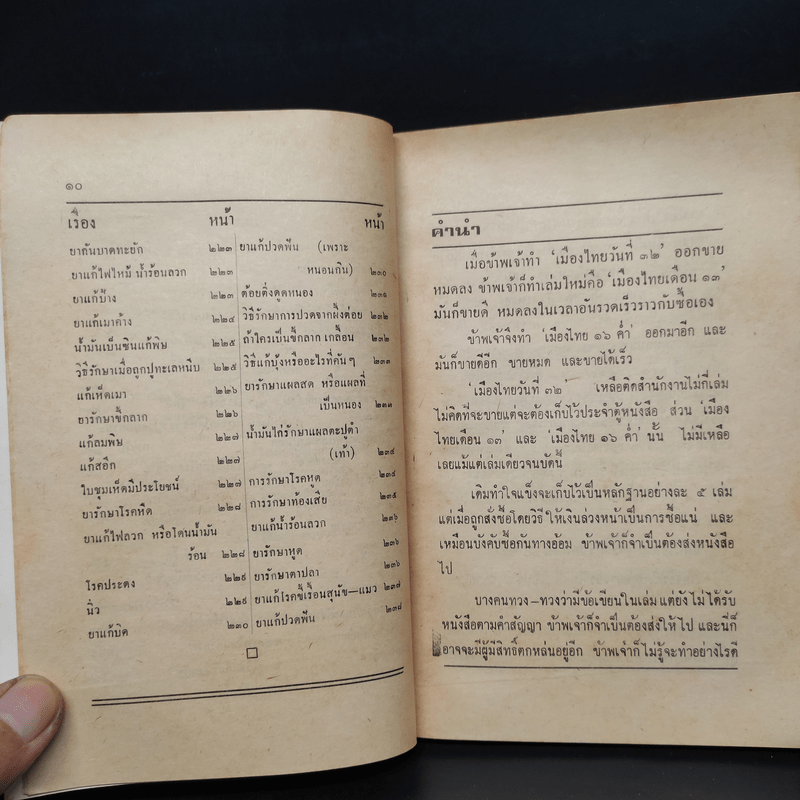 ๑๐
เรื่อง หน้า
ยากันบาดทะยัก ๒๒๓
ยาแก้ไฟไหม้ น้ำร้อนลวก ๒๒๓
ยาแก้บ้าง ๒๒๓
ยาแก้เมาค้าง ๒๒๔
น้ำมันเป็นซินแก้พิษ ๒๒๕
วิธีรักษาเมื่อถูกปูทะเลหนีบ ๒๒๕
แก้เห็ดเมา ๒๒๖
ยารักษาขี้กลาก ๒๒๖
แก้ลมพิษ ๒๒๗
แก้สอึก ๒๒๗
ใบชุมเห็ดมีประโยชน์ ๒๒๗
ยารักษาโรคหืด ๒๒๘
ยาแก้ไฟลวก หรือโดนน้ำมัน
ร้อน ๒๒๘
โรคประดง ๒๒๙
นิ่ว ๒๒๙
ยาแก้บิด ๒๓๐
หน้า
ยาแก้ปวดฟัน (เพราะ
หนอนกิน) ๒๓๐
ต้อยติ่งดูดหนอง ๒๓๑
วิธีรักษาการปวดจากผึ้งต่อย ๒๓๒
ถ้าใครเป็นขี้กลาก เกลื้อน ๒๓๒
วิธีแก้บุ้งหรืออะไรที่คันๆ ๒๓๓
ยารักษาแผลสด หรือแผลที่
เป็นหนอง ๒๓๓
น้ำมันไก่รักษาแผลตะปูตำ
(เท้า) ๒๓๔
การรักษาโรคหูด ๒๓๔
การรักษาท้องเสีย ๒๓๕
ยาแก้น้ำร้อนลวก ๒๓๖
ยารักษาหูด ๒๓๖
ยารักษาตาปลา ๒๓๖
ยาแก้โรคขี้เรื้อนสุนัข—แมว ๒๓๗
ยาแก้ปวดฟัน ๒๓๘
คำนำ
เมื่อข้าพเจ้าทำ ‘เมืองไทยวันที่ ๓๒’ ออกขาย
หมดลง ข้าพเจ้าก็ทำเล่มใหม่คือ ‘เมืองไทยเดือน ๑๓’
มันก็ขายดี หมดลงในเวลาอันรวดเร็วราวกับซื้อเอง
ข้าพเจ้าจึงทำ ‘เมืองไทย ๑๖ ค่ำ’ ออกมาอีก และ
มันก็ขายดีอีก ขายหมด และขายได้เร็ว
‘เมืองไทยวันที่ ๓๒’ เหลือติดสำนักงานไม่กี่เล่ม
ไม่คิดที่จะขายแต่จะต้องเก็บไว้ประจำตู้หนังสือ ส่วน ‘เมือง
ไทยเดือน ๑๓’ และ ‘เมืองไทย ๑๖ ค่ำ’ นั้น ไม่มีเหลือ
เลยแม้แต่เล่มเดียวจนบัดนี้
เดิมทำใจแข็งจะเก็บไว้เป็นหลักฐานอย่างละ ๕ เล่ม
แต่เมื่อถูกสั่งซื้อโดยวิธีให้เงินล่วงหน้าเป็นการซื้อแน่ และ
เหมือนบังคับซื้อกันทางอ้อม ข้าพเจ้าก็จำเป็นต้องส่งหนังสือ
ไป
บางคนทวง—ทวงว่ามีข้อเขียนในเล่ม แต่ยังไม่ได้รับ
หนังสือตามคำสัญญา ข้าพเจ้าก็จำเป็นต้องส่งให้ไป และนี่ก็
อาจจะมีผู้มีสิทธิ์ตกหล่นอยู่อีก ข้าพเจ้าก็ไม่รู้จะทำอย่างไรดี